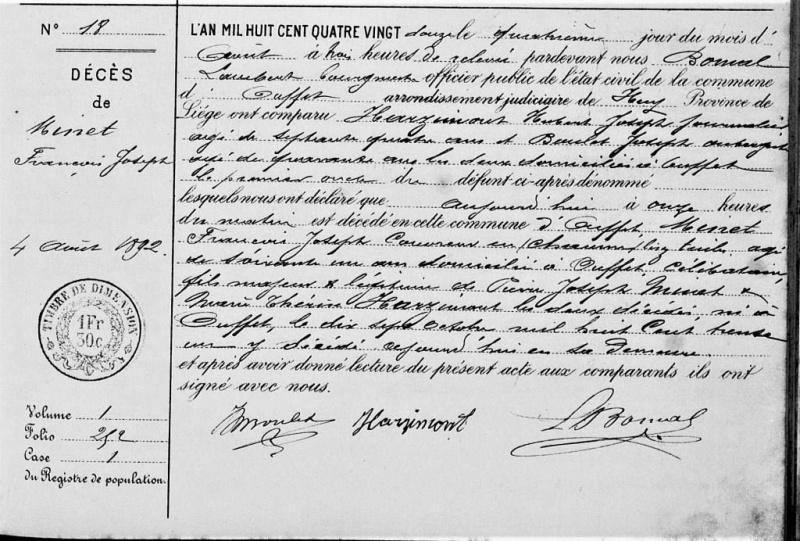 N° 18
DÉCÈS
de
Minet
François Joseph
4 Août 1892
TIMBRE DE DIMENSION
1 Fr
30 c.
Volume 1
Folio 252
Case 1
du Registre de population.
L'AN MIL HUIT CENT QUATRE VINGT douze le quatrième jour du mois d'
Août à trois heures de relevée pardevant nous Bomal
Lambert bourgmestre officier public de l'état civil de la commune
d'Ouffet arrondissement judiciaire de Huy Province de
Liége ont comparu Harzimont Hubert Joseph journalier
agé de septante quatre ans et Joseph
agé de quarante ans les deux domiciliés à Ouffet
le premier oncle du défunt ci-après dénommé
lesquels nous ont déclaré que aujourd'hui à onze heures
du matin est décédé en cette commune d'Ouffet Minet
François Joseph Couvreur en agé
de soixante un ans domicilié à Ouffet célibataire
fils majeur & légitime de Pierre Joseph Minet &
Marie Thérèse Harzimont les deux décédés, né à
Ouffet, le dix sept octobre mil huit cent trente
un y décédé aujourd'hui en sa demeure.
et après avoir donné lecture du présent acte aux comparants ils ont
signé avec nous.
Harzimont LBomal